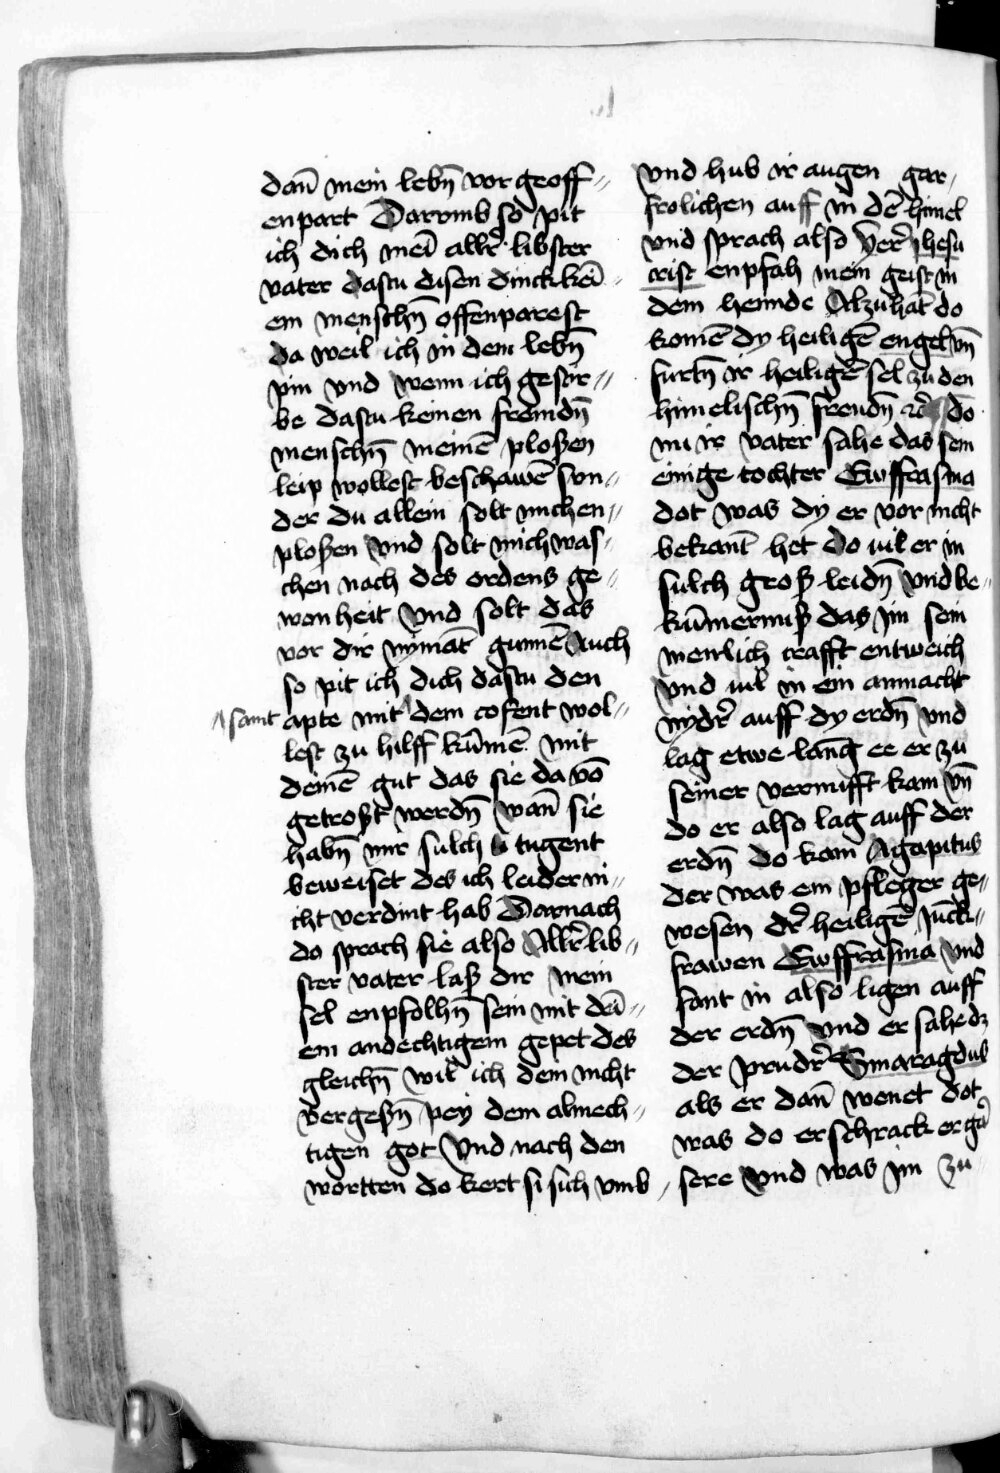 dan̄ mein lebn̄ vor geoff⸗
enpart Darvmb so pit
ich dich mei᷑n allr̄ libster
vater dastu disen dinck kei᷑
em menschn̄ offenparest
da weil ich in dem lebn̄
pin vnd wenn ich gestir⸗
be dastu keinen fremdn̄
menschn̄ meinē ploßen
leip wollest beschawē sun⸗
der du allein solt mich en⸗
ploßen vnd solt mich was⸗
chen nach des ordens ge⸗
wonheit vnd solt das
vor dir nymāt gunnē Auch
so pit ich dich dastu den
apte mit dem cofent wol⸗
samt
lest zu hilff kūmē mit
deinē gut das sie da vō
getrost werdn̄ wan̄ sie
habn̄ mir sulch tugent
beweiset des ich leider ni⸗
cht verdint hab Darnach
do sprach sie also Allr̄ lib⸗
ster vater laß dir mein
sel enpfolhn̄ sein mit dei᷑⸗
em andechtigem gepet des
gleichn̄ wil ich dem nicht
vergessn̄ pey dem almech⸗
tigen got Vnd nach den
wortten do kert si sich vmb
vnd hub ir augen gar
frolichen auff in dē himel
vnd sprach also Herr̄ Jhesu
crist enpfah mein geist in
dem hennde Alzuhāt do
komē dy heiligē engel vn̄
furtn̄ ir heiligē sel zu den
himelischn̄ freudn̄ ꝛc̄ do
nu ir vater sahe das sein
einige tochter Ewffrasina
dot was dy er vor nicht
bekant het do viel er in
sulch groß leidn̄ vnd be⸗
kūmernuß das im sein
menlich crafft entweich
vnd vil in ein anmacht
nydr̄ auff dy erdn̄ vnd
lag etwe lang ee er zu
seiner vernufft kam vn̄
do er also lag auff der
erdn̄ do kam Agapitus
der was ein pfleger ge⸗
wesen dr̄ heiligē Jūck⸗
frawen Ewffrasina vnd
fant in also ligen auff
der erdn̄ vnd er sahe dz
der prudr̄ Smaragdus
als er dan̄ wenet dot
was do erschrack er gar
sere vnd was im zu⸗